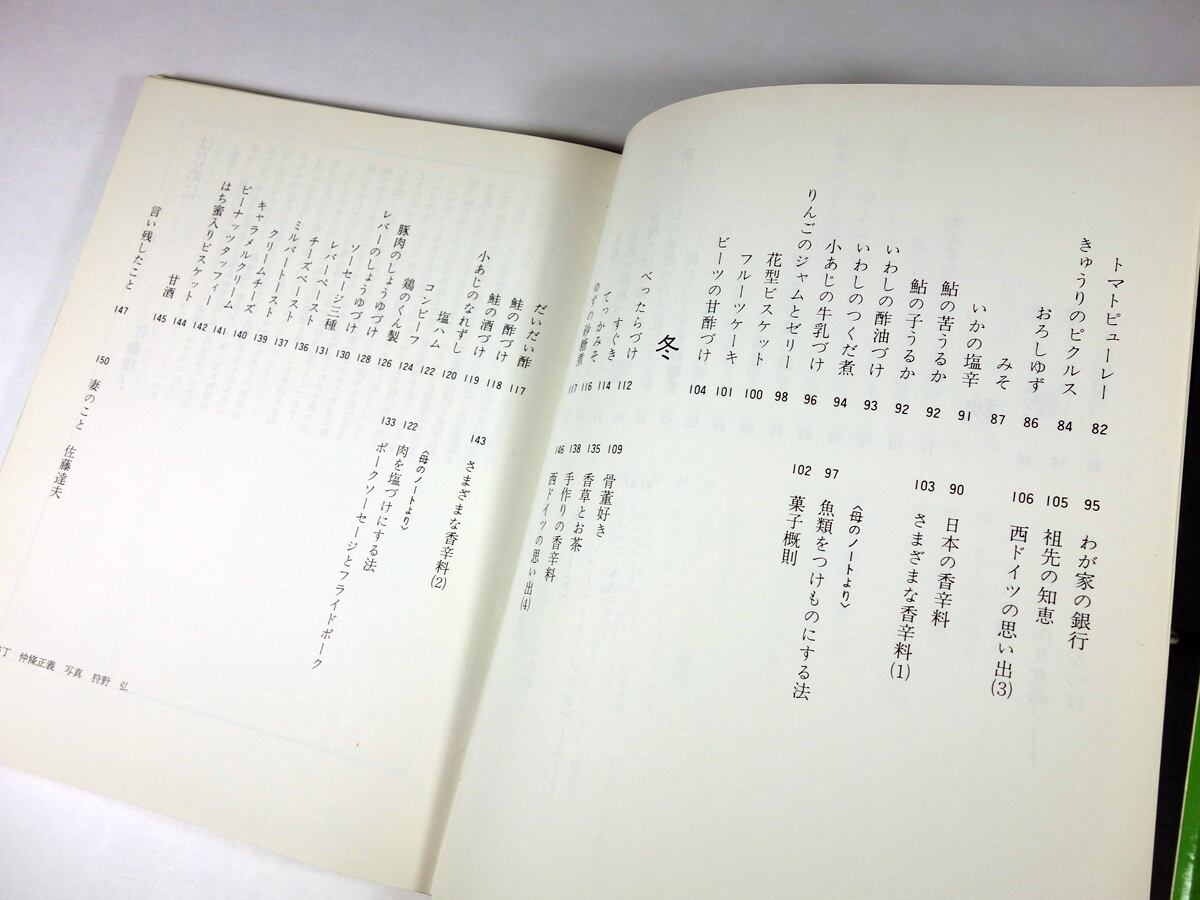 トマトピューレー 82
きゅうりのピクルス 84
おろしゆず 86
みそ 87
いかの塩辛 91
鮎の苦うるか 92
鮎の子うるか 92
いわしの酢油づけ 93
いわしのつくだ煮 94
小あじの牛乳づけ 96
りんごのジャムとゼリー 98
花型ビスケット 100
フルーツケーキ 101
ビーツの甘酢づけ 104
95 わが家の銀行
105 祖先の知恵
106 西ドイツの思い出(3)
90 日本の香辛料
103 さまざまな香辛料(1)
〈母のノートより〉
97 魚類をつけものにする法
102 菓子概則
冬
べったらづけ 112
すぐき 114
てっかみそ 116
ゆずの砂糖煮 117
109 骨董好き
135 香草とお茶
138 手作りの香辛料
146 西ドイツの思い出(4)
だいだい酢 117
鮭の酢づけ 118
鮭の酒づけ 119
小あじのなれずし 120
塩ハム 122
コンビーフ 124
鶏のくん製 126
豚肉のしょうゆづけ 128
レバーのしょうゆづけ 130
ソーセージ三種 131
レバーペースト 136
チーズペースト 137
ミルバートースト 139
クリームチーズ 140
キャラメルクリーム 141
ピーナッツタッフィー 142
はち蜜入りビスケット 144
甘酒 145
言い残したこと 147
143 さまざまな香辛料(2)
〈母のノートより〉
122 肉を塩づけにする法
133 ポークソーセージとフライドポーク
150 妻のこと 佐藤達夫
丁 仲條正義 写真 狩野 弘